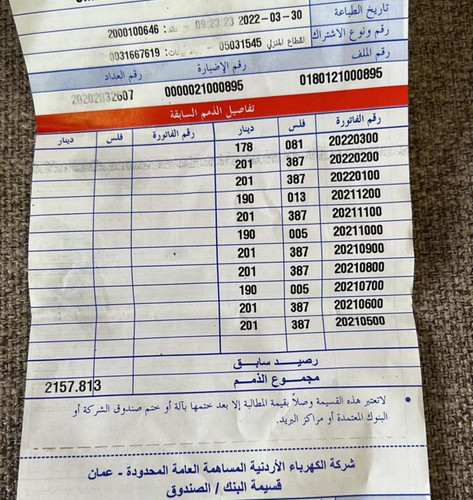 تاريخ الطباعة 2022-03-30 09:23:23 2000100646
رقم ونوع الاشتراك القطاع المنزلي 05031545 0031667619
رقم الملف رقم الإضبارة رقم العداد
0180121000895 0000021000895 20202032607
تفاصيل الذمم السابقة
رقم الفاتورة فلس دينار رقم الفاتورة فلس دينار
20220300 081 178
20220200 387 201
20220100 387 201
20211200 013 190
20211100 387 201
20211000 005 190
20210900 387 201
20210800 387 201
20210700 005 190
20210600 387 201
20210500 387 201
رصيد سابق
مجموع الذمم 2157.813
• لاتعتبر هذه القسيمة وصلاً بقيمة المطالبة إلا بعد ختمها بآلة أو ختم صندوق الشركة أو
البنوك المعتمدة أو مراكز البريد.
شركة الكهرباء الأردنية المساهمة العامة المحدودة - عمان
قسيمة البنك / الصندوق